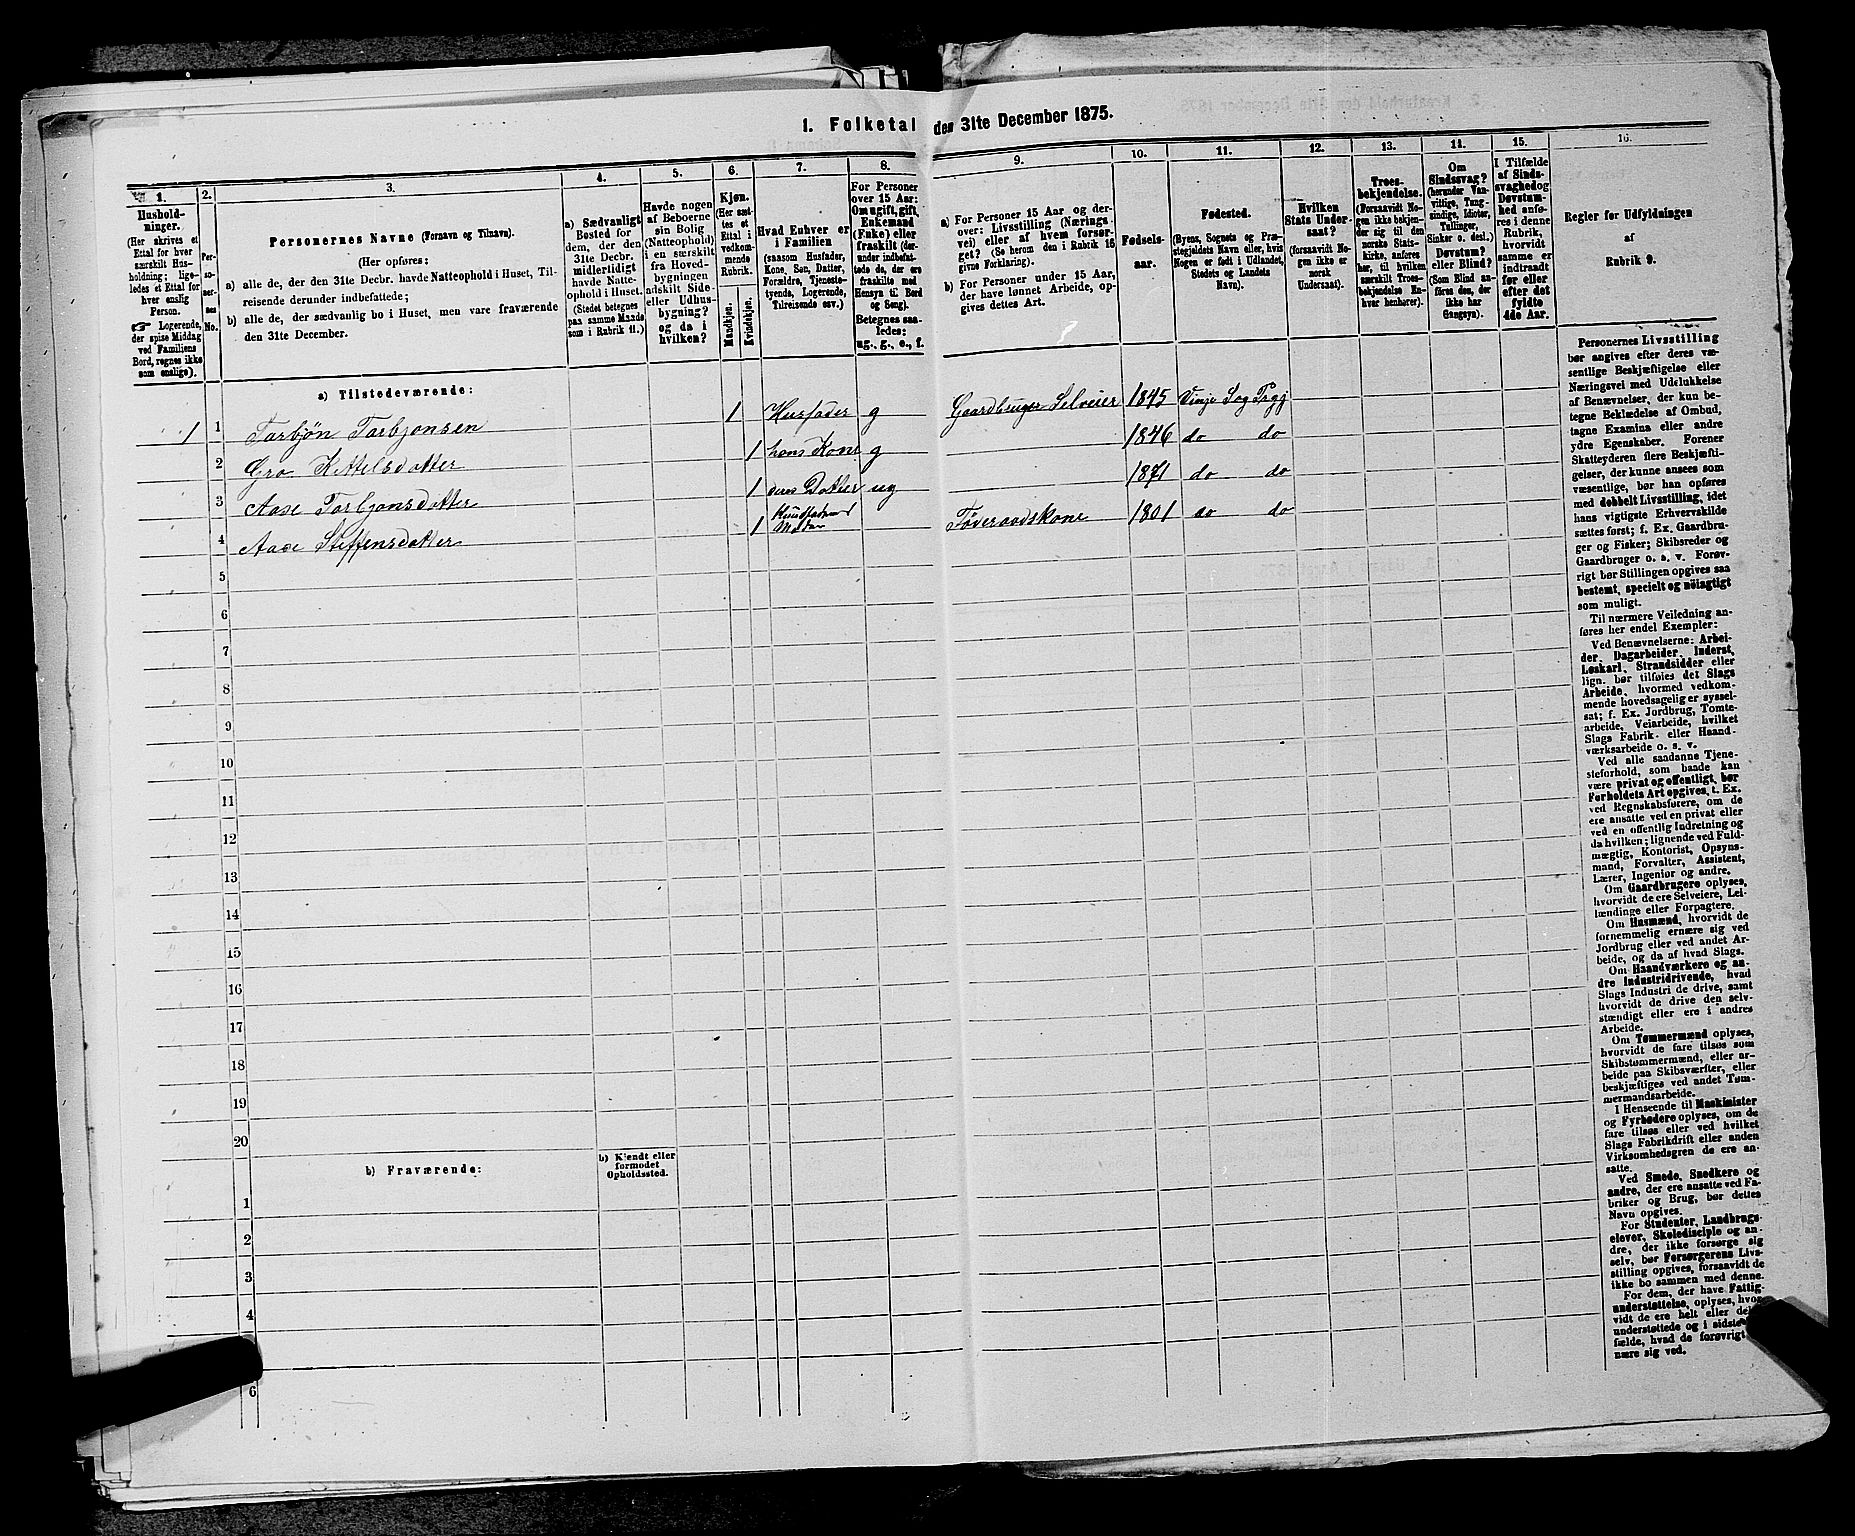 1. Folketal den 31te December 1875.
1.
Hushold-
ninger.
(Her skrives et
Ettal for hver
særskilt Hus-
holdning; lige-
ledes et Ettal for
hver enslig
Person.
Logerende,
der spise Middag
ved Familiens
Bord, regnes ikke
som enslige).
2.
Per-
so-
ner-
nes
No.
3.
Personernes Navne (Fornavn og Tilnavn).
(Her opføres:
a) alle de, der den 31te Decbr. havde Natteophold i Huset, Til-
reisende derunder indbefattede;
b) alle de, der sædvanlig bo i Huset, men vare fraværende
den 31te December.
4.
a) Sædvanligt
Bosted for
dem, der den
31te Decbr.
midlertidigt
havde Natte-
ophold i Huset.
(Stedet betegnes
paa samme Maade
som i Rubrik 11.)
5.
Havde nogen
af Beboerne
sin Bolig
(Natteophold)
i en særskilt
fra Hoved-
bygningen
adskilt Side-
eller Udhus-
bygning?
og da i
hvilken?
6.
Kjøn.
(Her sæt-
tes et
Ettal i
vedkom-
mende
Rubrik.
Mandkjøn.
Kvindekjøn.
7.
Hvad Enhver er
i Familien
(saasom Husfader,
Kone, Søn, Datter,
Forældre, Tjeneste-
tyende, Logerende,
Tilreisende osv.)
8.
For Personer
over 15 Aar:
Om ugift, gift,
Enkemand
(Enke) eller
fraskilt (der-
under indbefat-
tede de, der ere
fraskilte med
Hensyn til Bord
og Seng).
Betegnes saa-
ledes:
ug., g., e., f.
9.
a) For Personer 15 Aar og der-
over: Livsstilling (Nærings-
vei) eller af hvem forsør-
get? (Se herom den i Rubrik 16
givne Forklaring).
b) For Personer under 15 Aar,
der have lønnet Arbeide, op-
gives dettes Art.
10.
Fødsels-
aar.
11.
Fødested.
(Byens, Sognets og Præ-
stegjeldets Navn eller, hvis
Nogen er født i Udlandet,
Stedets og Landets
Navn).
12.
Hvilken
Stats Under-
saat?
(forsaavidt No-
gen ikke er
norsk
Undersaat).
13.
Troes-
bekjendelse.
(Forsaavidt No-
gen ikke bekjen-
der sig til den
norske Stats-
kirke, anføres
her, til hvilken
særskilt Troes-
bekjendelse En-
hver henhører).
14.
Om
Sindssvag?
(herunder Van-
vittige, Tung-
sindige, Idioter,
Tullinger,
Sinker o. desl.)
Døvstum?
eller Blind?
(Som Blind an-
føres den, der
ikke har
Gangsyn).
15.
I Tilfælde
af Sinds-
svaghed og
Døvstum-
hed anfø-
res i denne
Rubrik,
hvorvidt
samme er
indtraadt
før eller
efter det
fyldte
4de Aar.
16.
Regler for Udfyldningen
af
Rubrik 9.
a) Tilstedeværende:
1 1 Tarbjøn Tarbjønsen 1 Husfader g Gaardbruger Selveier 1845 Vinje Sog Prgj
2 Gro Kittelsdatter 1 hans Kone g 1846 do do
3 Aase Tarbjønsdatter 1 deres Datter ug 1871 do do
4 Aase Steffensdatter 1 Moder Føderaadskone 1801 do do
5
6
7
8
9
10
11
12
13
14
15
16
17
18
19
20
b) Fraværende:
b) Kjendt eller
formodet
Opholdssted.
1
2
3
4
6
Personernes Livsstilling
bør angives efter deres væ-
sentlige Beskjæftigelse eller
Næringsvei med Udelukkelse
af Benævnelser, der kun be-
tegne Beklædelse af Ombud,
tagne Examina eller andre
ydre Egenskaber. Forener
Skatteyderen flere Beskjæfti-
gelser, der kunne ansees som
væsentlige, bør han opføres
med dobbelt Livsstilling, idet
hans vigtigste Erhvervskilde
sættes først; f. Ex. Gaardbru-
ger og Fisker; Skibsreder og
Gaardbruger o. s. v. Forøv-
rigt bør Stillingen opgives saa
bestemt, specielt og nöiagtigt
som muligt.
Til nærmere Veiledning an-
føres her endel Exempler:
Ved Benævnelserne: Arbei-
der, Dagarbeider, Inderst,
Løskarl, Strandsidder eller
lign. bør tilføies det Slags
Arbeide, hvormed vedkom-
mende hovedsagelig er syssel-
sat; f. Ex. Jordbrug, Tomte-
arbeide, Veiarbeide, hvilket
Slags Fabrik- eller Haand-
værksarbeide o. s. v.
Ved alle saadanne Tjene-
steforhold, som baade kan
være privat og offentligt, bør
Forholdets Art opgives, t. Ex.
ved Regnskabsførere, om de
ere ansatte ved en privat eller
ved en offentlig Indretning og
da hvilken; lignende ved Fuld-
mægtig, Kontorist, Opsyns-
mand, Forvalter, Assistent,
Lærer, Ingeniør og andre.
Om Gaardbrugere oplyses,
hvorvidt de ere Selveiere, Lei-
lændinge eller Forpagtere.
Om Husmænd, hvorvidt de
fornemmelig ernære sig ved
Jordbrug eller ved andet Ar-
beide, og da af hvad Slags.
Om Haandværkere og an-
dre Industridrivende, hvad
Slags Industri de drive, samt
hvorvidt de drive den selv-
stændigt eller ere i andres
Arbeide.
Om Tømmermænd oplyses,
hvorvidt de fare tilsøs som
Skibstømmermænd, eller ar-
beide paa Skibsværfter, eller
beskjæftiges ved andet Tøm-
mermandsarbeide.
I Henseende til Maskinister
og Fyrbødere oplyses, om de
fare tilsøs eller ved hvilket
Slags Fabrikdrift eller anden
Virksomhedsgren de ere an-
satte.
Ved Smede, Snedkere og
andre, der ere ansatte ved Fa-
briker og Brug, bør dettes
Navn opgives.
For Studenter, Landbrugs-
elever, Skoledisciple og an-
dre, der ikke forsørge sig
selv, bør Forsørgerens Livs-
stilling opgives, forsaavidt de
ikke bo sammen med denne.
For dem, der have Fattig-
understøttelse, oplyses, hvor-
vidt de ere helt eller del
understøttede og i sidste
fælde, hvad de forøvrigt
nære sig ved.